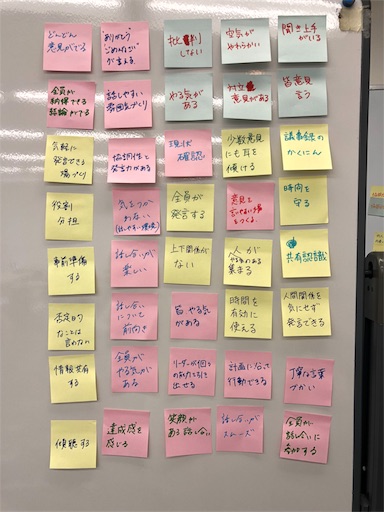 どんどん
意見がでる
ありがとう
"ごめんなさい"
が言える
批判
しない
空気が
やわらかい
聞き上手
がいる
全員が
納得できる
結論がでてる
話しやすい
雰囲気づくり
やる気が
ある
対立
意見がある
皆意見
言う
気軽に
発言できる
場づくり
協調性と
発言力がある
現状
確認
少数意見
にも耳を
傾ける
議事録の
かくにん
役割
分担
気をつかわ
ない
(話しやすい環境)
全員が
発言する
意見を
言いやすい場
をつくる。
時間を
守る
事前準備
する
話し合いが
楽しい
上下関係が
ない
人が
集まる
共有認識
否定的
なことは
言わない
話し合い
について
前向き
皆やる気
がある
時間を
有効に
使える
人間関係を
気にせず
発言できる
情報共有
する
全員が
やる気が
ある
リーダーが個々
の能力を引き
出せる
計画に沿って
行動できる
丁寧な言葉
づかい
傾聴する
達成感を
感じる
笑顔が
ある話し合い
話し合いが
スムーズ
全員が
話し合いに
参加する